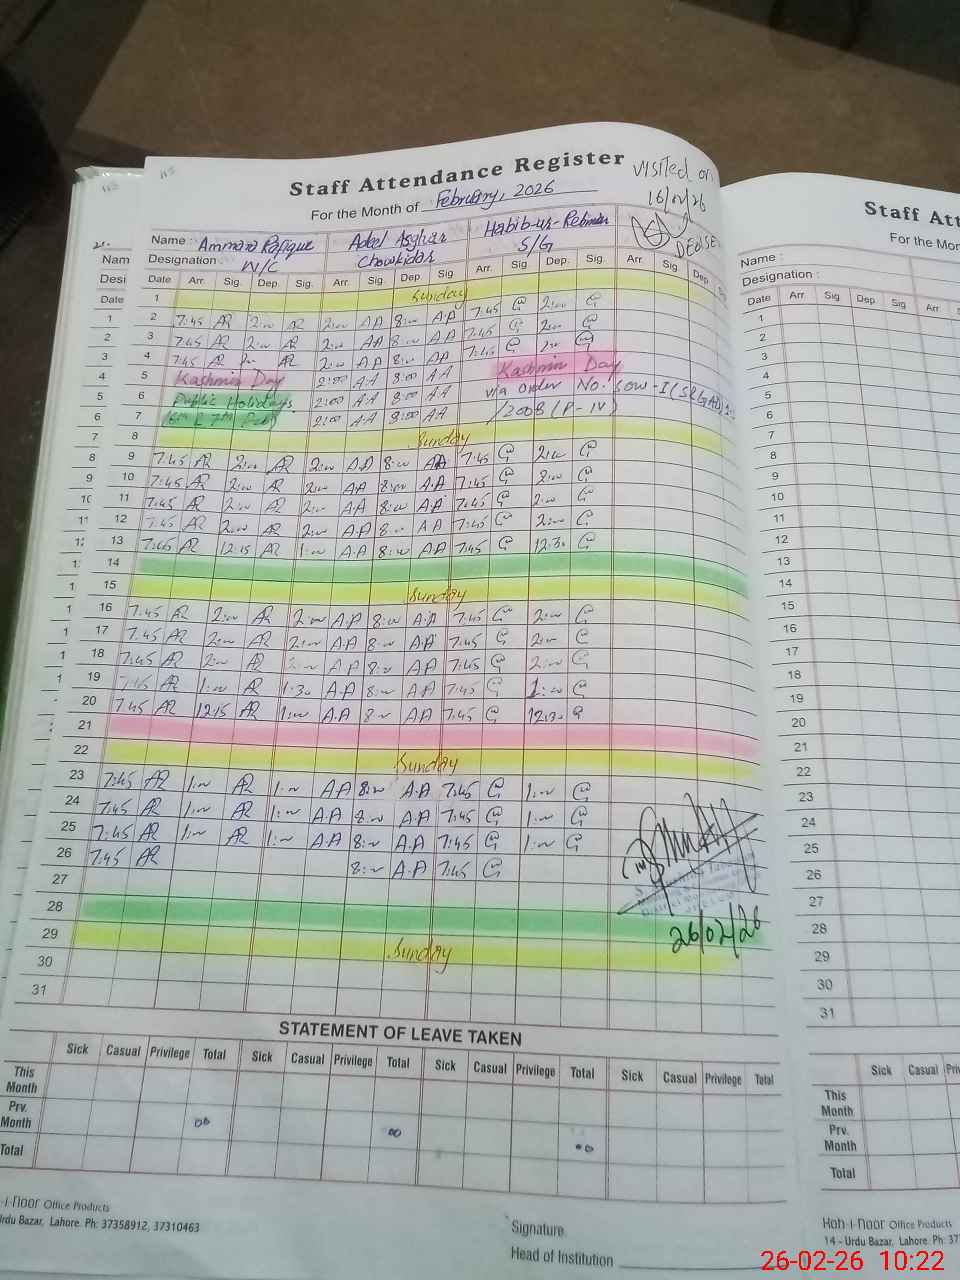 Staff Attendance Register
For the Month of February, 2026
visited on
16/02/26
DEO(SE
Name : Ammara Rafique Adeel Asghar Habib-ur-Rehman
Designation N/C Chowkidar S/G
Date Arr. Sig. Dep. Sig. Arr. Sig. Dep. Sig. Arr. Sig. Dep. Sig. Arr. Sig. Dep.
1 Sunday
2 7:45 AR 2:00 AR 2:00 AA 8:00 AA 7:45 G 2:00 G
3 7:45 AR 2:00 AR 2:00 AA 8:00 AA 7:45 G 2:00 G
4 7:45 AR 2:00 AR 2:00 AA 8:00 AA 7:45 G 2:00 G
5 Kashmir Day 2:00 AA 8:00 AA Kashmir Day
6 Public Holidays 2:00 AA 8:00 AA via order No.
7 2:00 AA 8:00 AA /2008 (P-IV)
8 Sunday
9 7:45 AR 2:00 AR 2:00 A.A 8:00 AA 7:45 G 2:00 G
10 7:45 AR 2:00 AR 2:00 AA 8:00 A.A 7:45 G 2:00 G
11 7:45 AR 2:00 AR 2:00 AA 8:00 A.A 7:45 G 2:00 G
12 7:45 AR 2:00 AR 2:00 AA 8:00 AA 7:45 G 2:00 G
13 7:45 AR 12:15 AR 1:00 A.A 8:00 AA 7:45 G 12:30 G
14
15 Sunday
16 7:45 AR 2:00 AR 2:00 A.A 8:00 A.A 7:45 G 2:00 G
17 7:45 AR 2:00 AR 2:00 A.A 8:00 A.A 7:45 G 2:00 G
18 7:45 AR 2:00 AR 2:00 AA 8:00 AA 7:45 G 2:00 G
19 7:45 AR 1:00 AR 1:30 A.A 8:00 A.A 7:45 G 1:00 G
20 7:45 AR 12:15 AR 1:00 A.A 8:00 A.A 7:45 G 12:30 G
21
22 Sunday
23 7:45 AR 1:00 AR 1:00 AA 8:00 A.A 7:45 G 1:00 G
24 7:45 AR 1:00 AR 1:00 A.A 8:00 A.A 7:45 G 1:00 G
25 7:45 AR 1:00 AR 1:00 A.A 8:00 A.A 7:45 G 1:00 G
26 7:45 AR 8:00 A.A 7:45 G
27
28
26/02/26
29 Sunday
30
31
STATEMENT OF LEAVE TAKEN
Sick Casual Privilege Total Sick Casual Privilege Total Sick Casual Privilege Total Sick Casual Privilege Total
This Month
Prv. Month 00 00 00
Total
-i-noor Office Products
Urdu Bazar, Lahore. Ph: 37358912, 37310463
Signature
Head of Institution
Staff Att
For the Mon
Name :
Designation :
Date Arr Sig Dep Sig Arr
1
2
3
4
5
6
7
8
9
10
11
12
13
14
15
16
17
18
19
20
21
22
23
24
25
26
27
28
29
30
31
Sick Casual Priv
This Month
Prv. Month
Total
Koh-i-noor Office Products
14 - Urdu Bazar, Lahore. Ph: 37
26-02-26 10:22